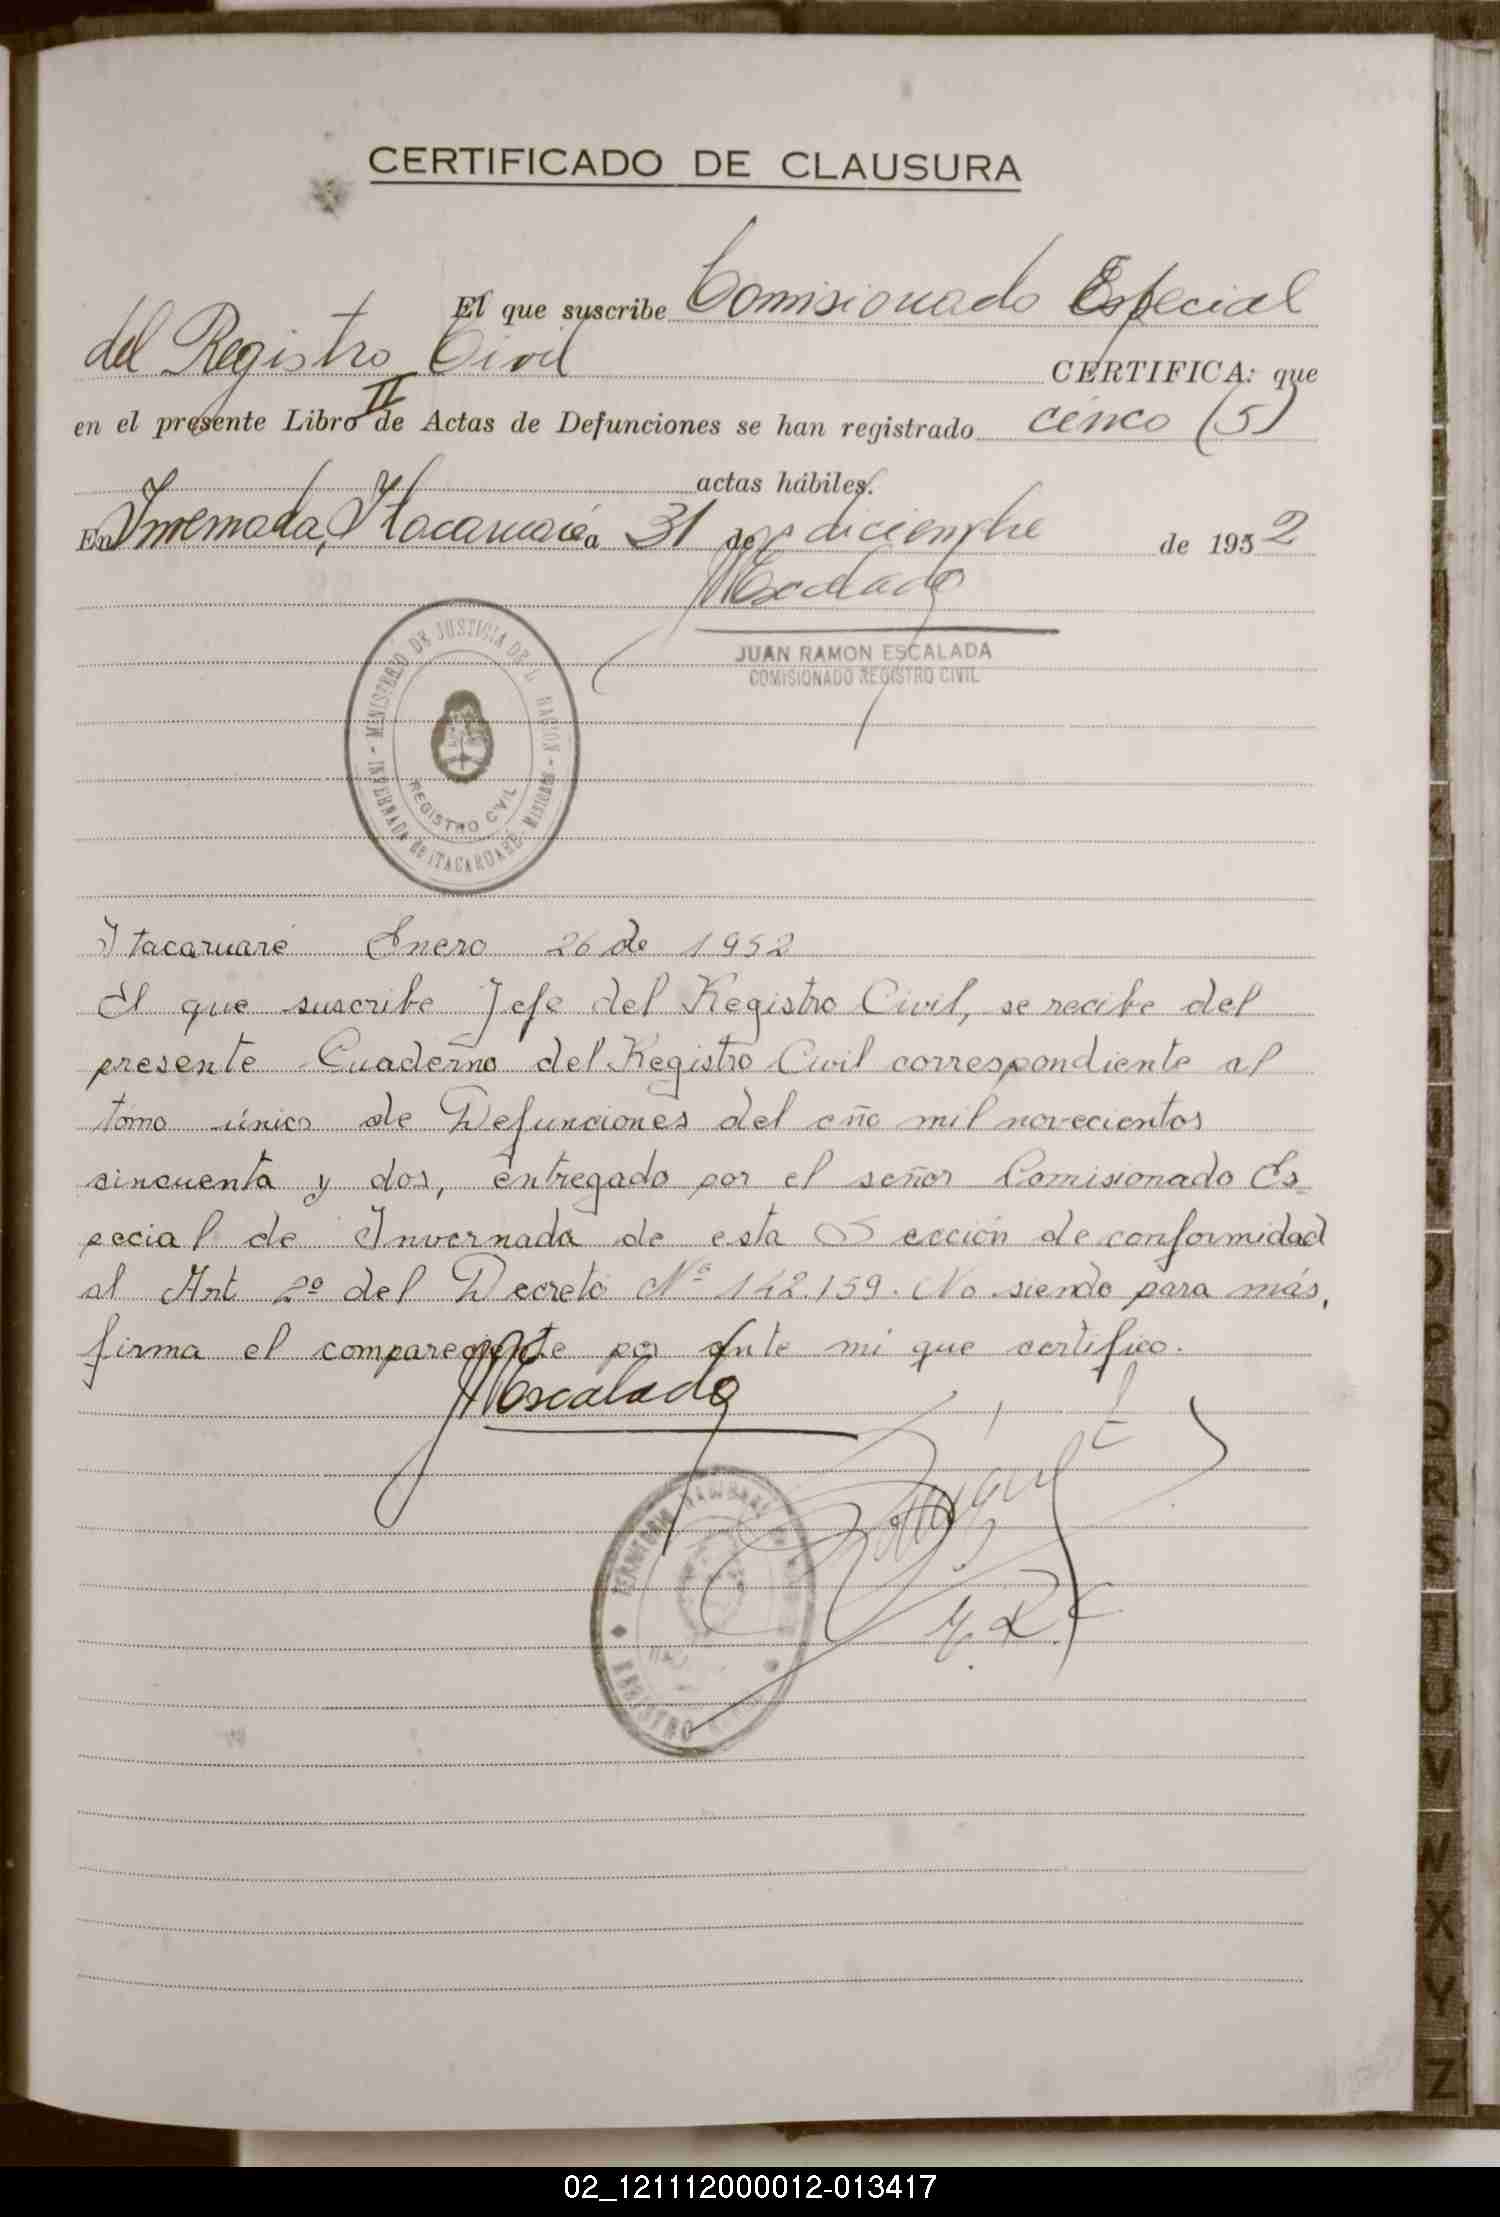 CERTIFICADO DE CLAUSURA
El que suscribe Comisionado Especial
del Registro Civil CERTIFICA: que
en el presente Libro II de Actas de Defunciones se han registrado cinco (5)
actas hábiles.
En Invernada, Itacaruaré a 31 de diciembre de 1952
Escalada
JUAN RAMON ESCALADA
COMISIONADO REGISTRO CIVIL
- MINISTERIO DE JUSTICIA DE L. NACION -
INVERNADA DE ITACARUARE - MISIONES
REGISTRO CIVIL
Itacaruaré Enero 26 de 1952
El que suscribe Jefe del Registro Civil, se recibe del
presente Cuaderno del Registro Civil correspondiente al
tomo único de Defunciones del año mil novecientos
cincuenta y dos, entregado por el señor Comisionado Es
pecial de Invernada de esta Sección de conformidad
al Art 2º del Decreto Nº 142.159. No siendo para más,
firma el compareciente por ante mi que certifico.
Escalada
TERRITORIO NACIONAL
REGISTRO
02_121112000012-013417
K
O
P
Q
R
S
T
U
V
W
X
Y
Z